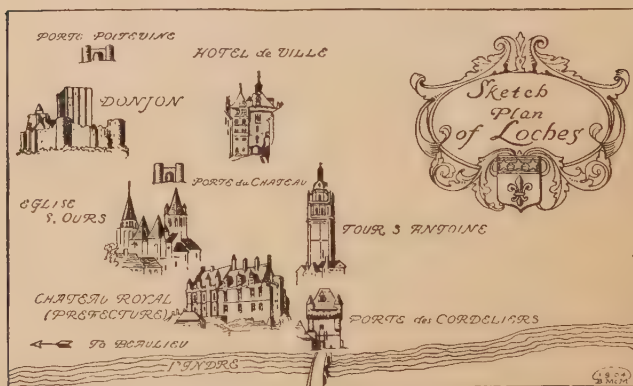 PORTE POITEVINE
HOTEL de VILLE
DONJON
Sketch
Plan
of Loches
PORTE du CHATEAU
EGLISE
S. OURS
TOUR S ANTOINE
CHATEAU ROYAL
(PREFECTURE)
PORTE des CORDELIERS
To BEAULIEU
l'INDRE
1904
B McM